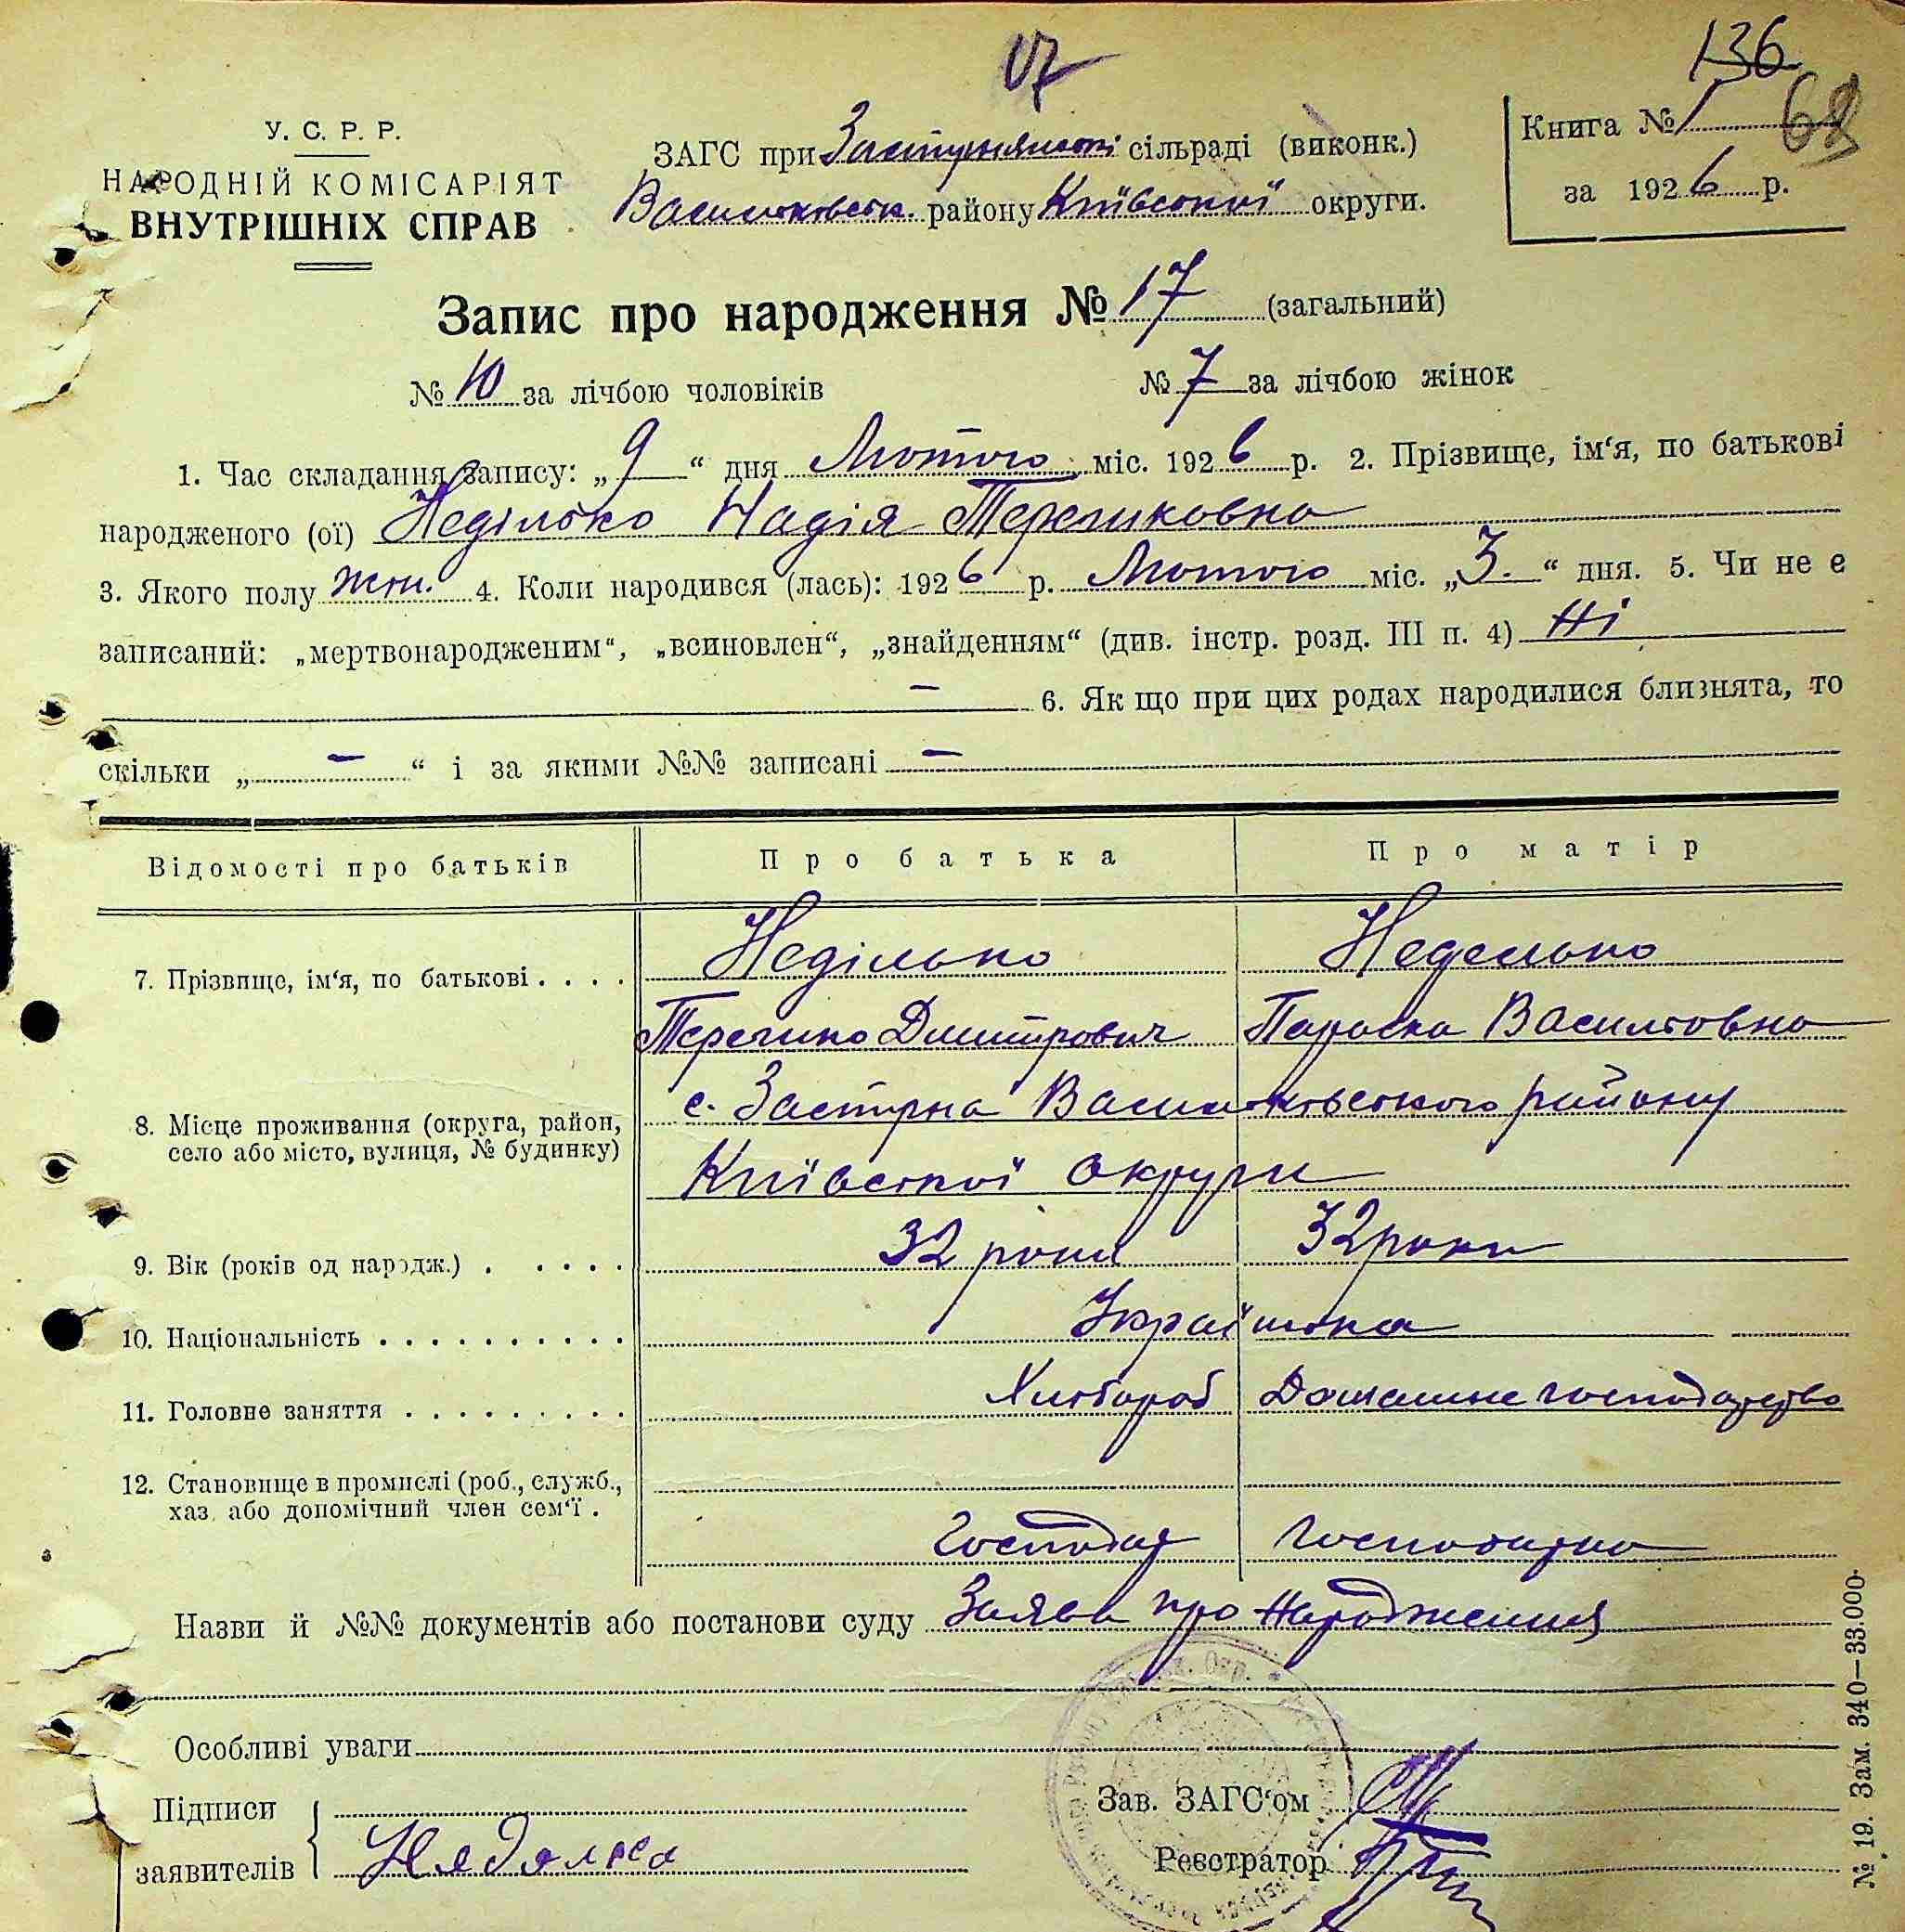 136
17
68
У. С. Р. Р.
НАРОДНІЙ КОМІСАРІЯТ
ВНУТРІШНІХ СПРАВ
ЗАГС при Застугнянські сільраді (виконк.)
Васильковськ. району Київської округи.
Книга № 1
за 1926 р.
Запис про народження № 17 (загальний)
№ 10 за лічбою чоловіків № 7 за лічбою жінок
1. Час складання запису: „9“ дня Лютого міс. 1926 р. 2. Прізвище, ім‘я, по батькові
народженого (ої) Неділько Надія Терешковна
3. Якого полу жін. 4. Коли народився (лась): 1926 р. Лютого міс. „3.“ дня. 5. Чи не є
записаний: „мертвонародженим“, „всиновлен“, „знайденням“ (див. інстр. розд. III п. 4) Ні
– 6. Як що при цих родах народилися близнята, то
скільки „–“ і за якими №№ записані –
Відомості про батьків Про батька Про матір
7. Прізвище, ім‘я, по батькові . . . . Неділько Неделько
Терешко Дмитрович Параска Васильовна
8. Місце проживання (округа, район, село або місто, вулиця, № будинку) с. Застугна Васильковського району
Київської округи
9. Вік (років од народж.) . . . . . 32 роки 32 роки
10. Національність . . . . . . . . . . Українська
11. Головне заняття . . . . . . . . . Хлібороб Домашнє господарство
12. Становище в промислі (роб., служб.,
хаз. або допомічний член сем‘ї . Господар Господарка
Назви й №№ документів або постанови суду Заява про Народження
Особливі уваги
Підписи
заявителів Нядялко
Зав. ЗАГС‘ом
Реєстратор
№ 19. Зам. 340—33.000.